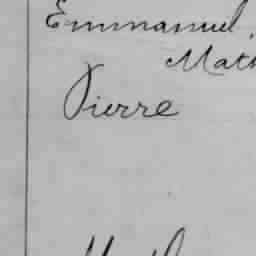 Emmanuel,
Math
Pierre